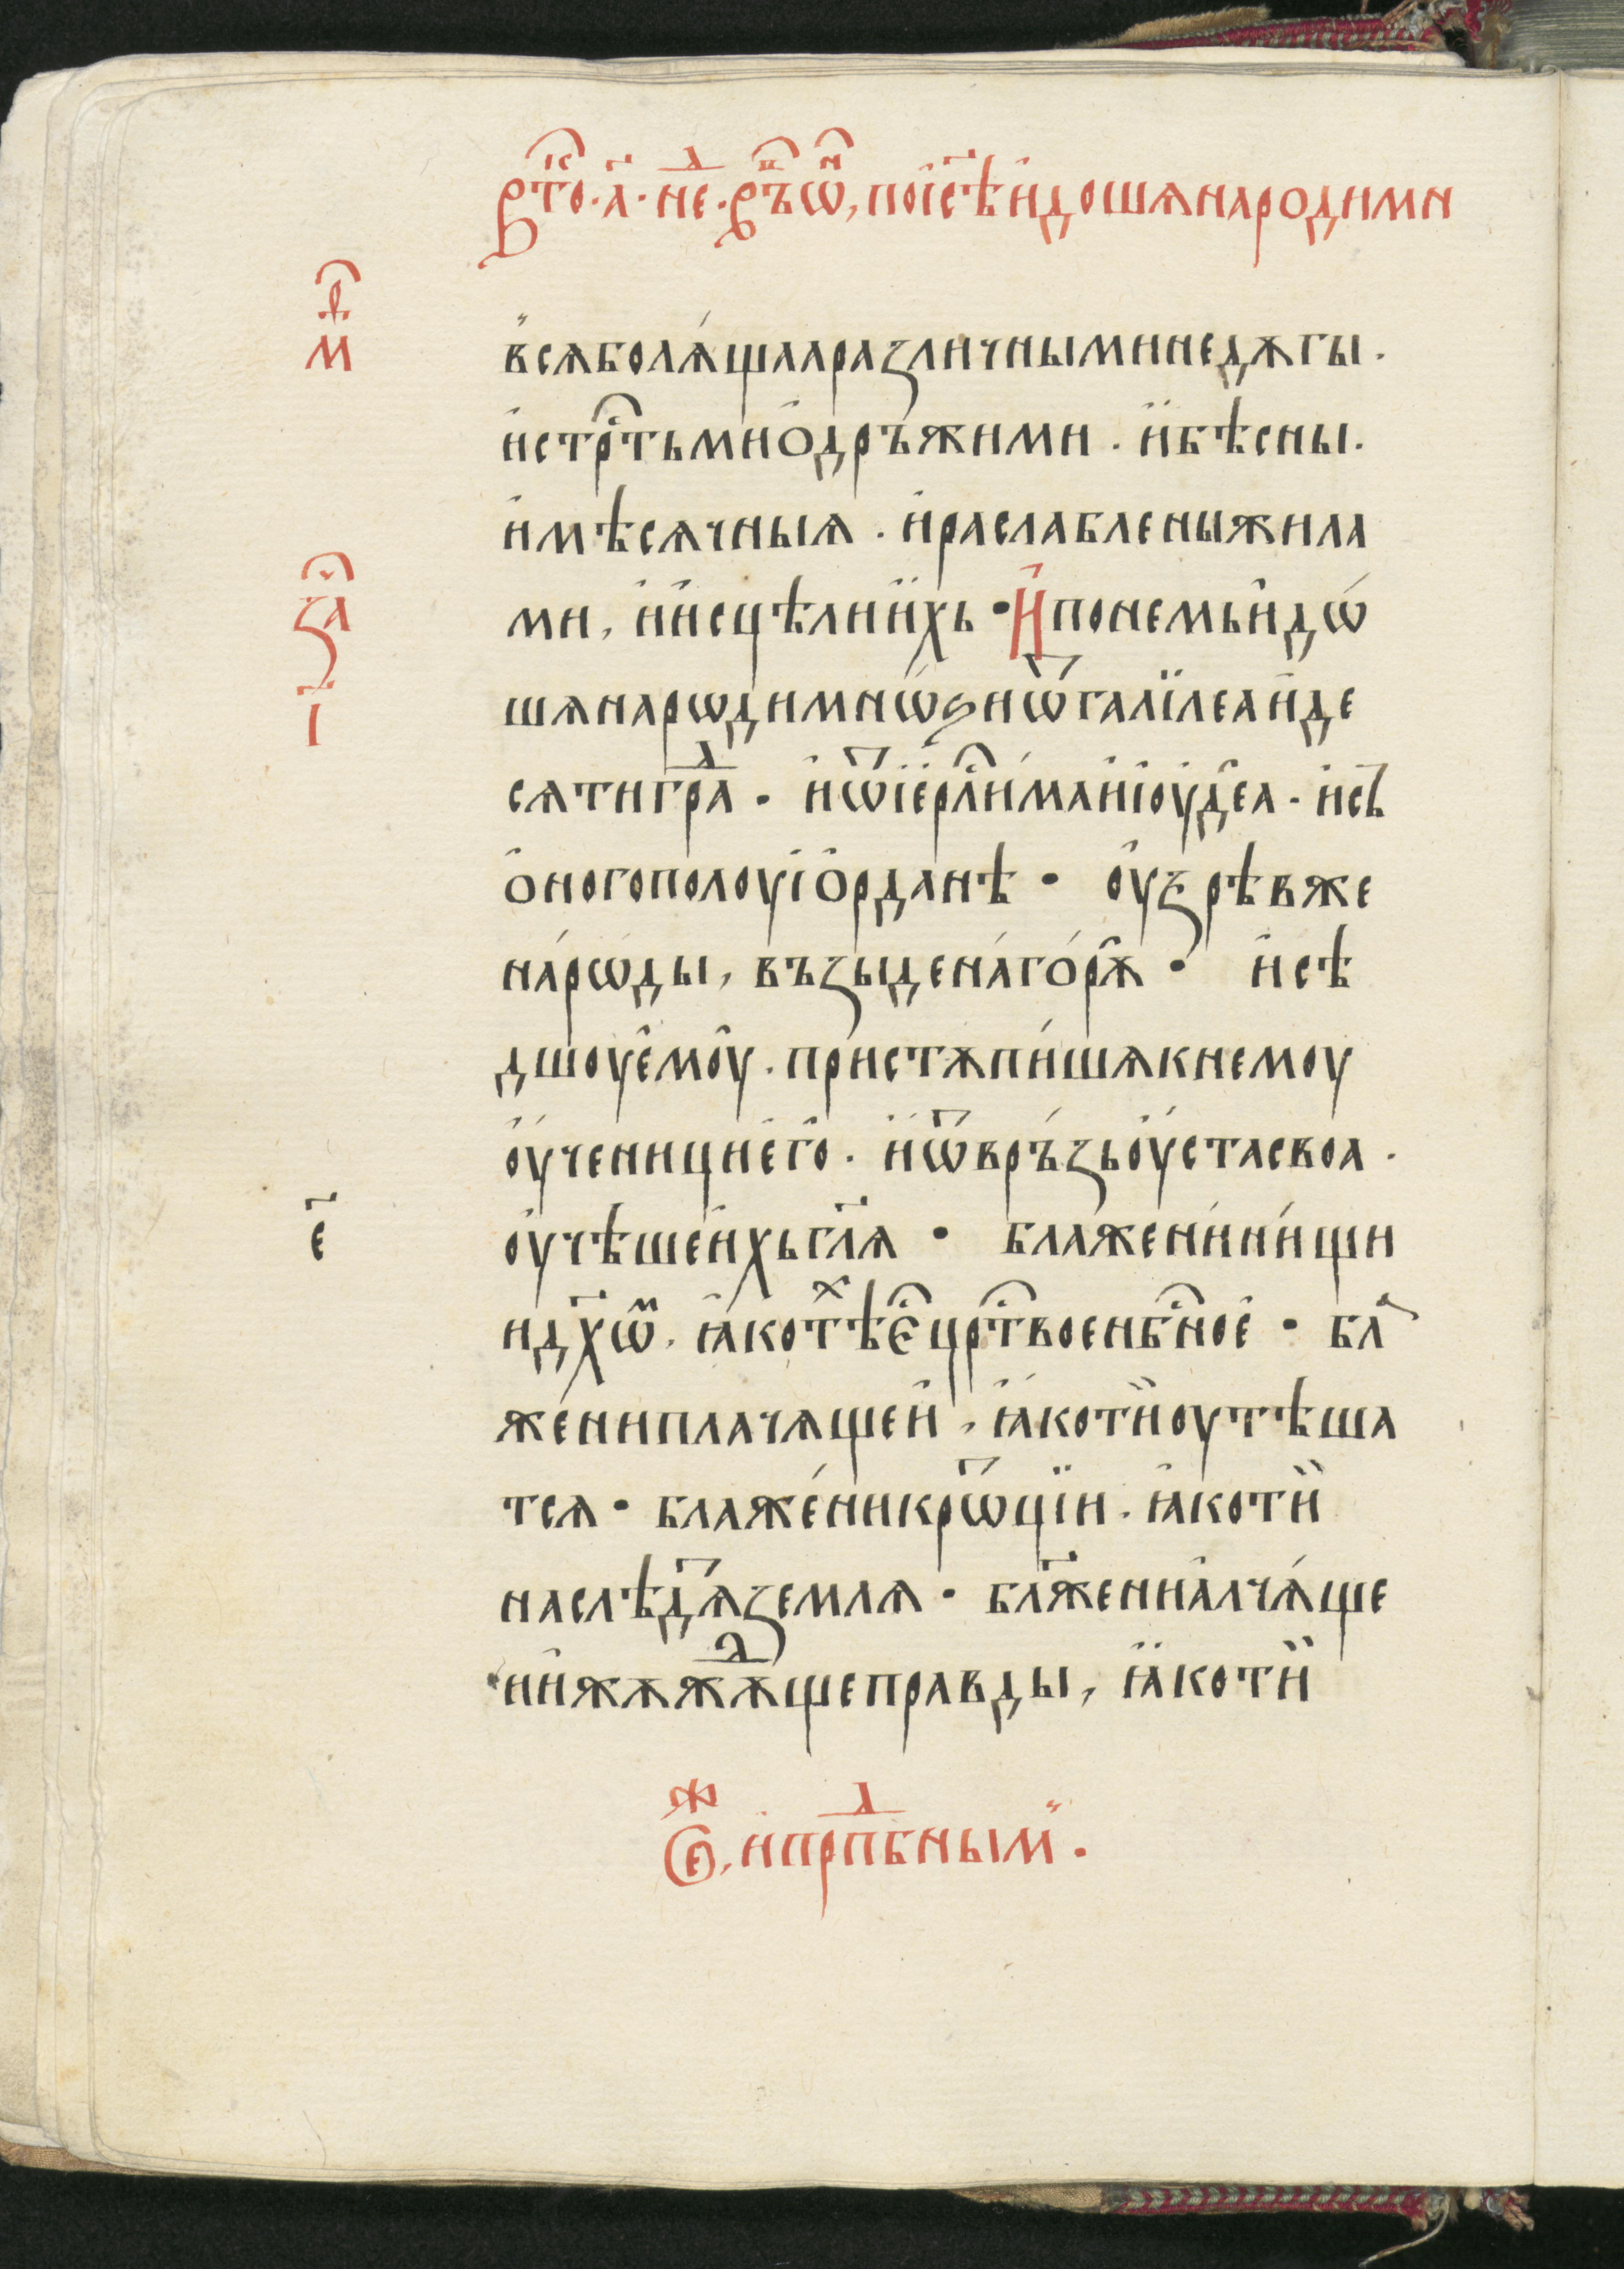 вто҇ . а҃ . нед . въ ѡ҆н , по і҆с҃ѣ и҆доша народи мн
мр҇т
всѧ болѧ́щаа различными недѫгы .
и҆ стрⷭ҇тьми ѻ҆дръжими . и҆ бѣсны .
и҆ мѣсѧчныѧ . и҆ раслаблены жила
за҇ч
ми , и҆ и҆сцѣли и҆хь • И҆ по немь и҆дѡ́
і҃
шѧ нарѡди мнѡ҆ѕи ѿ галїлеа и҆ де
сѧти граⷣ . и҆ ѿ і҆ерⷭ҇ли́ма и҆ і҆оуде҆а . и҆ сь
ѻ҆ного полоу і҆ѻ҆рданѣ • оу҆зрѣв же
на́рѡды , възыде на́ гѻ́рѫ • и҆ сѣ
дшоу е҆моу҆ . пристѫпи́шѧ к немоу
оу҆ченици е҆го҆ . и҆ ѿвръ́зь оу҆ста своа .
е҃
оу҆чѣше и҆хь гл҃ѧ • бла́жени́ ни́щи
и дх҃ѡⷨ . ꙗ҆ко тѣⷯ є҆ⷭ҇ црⷭ҇твое нбⷭ҇ное҆ • бл҃
же́ни плачѧщеи҆ , ꙗ҆ко тїи оутѣша
тсѧ • блаже́ни крѡ́тцїи . ꙗ҆ко тїи
наслѣдѧⷮ землѧ • бл҃жени а҆лчѧ́ще
и и҆ жѫжѫⷣще правды , ꙗ҆ко тїи
ѻⷤ , и҆ прпⷣбным .